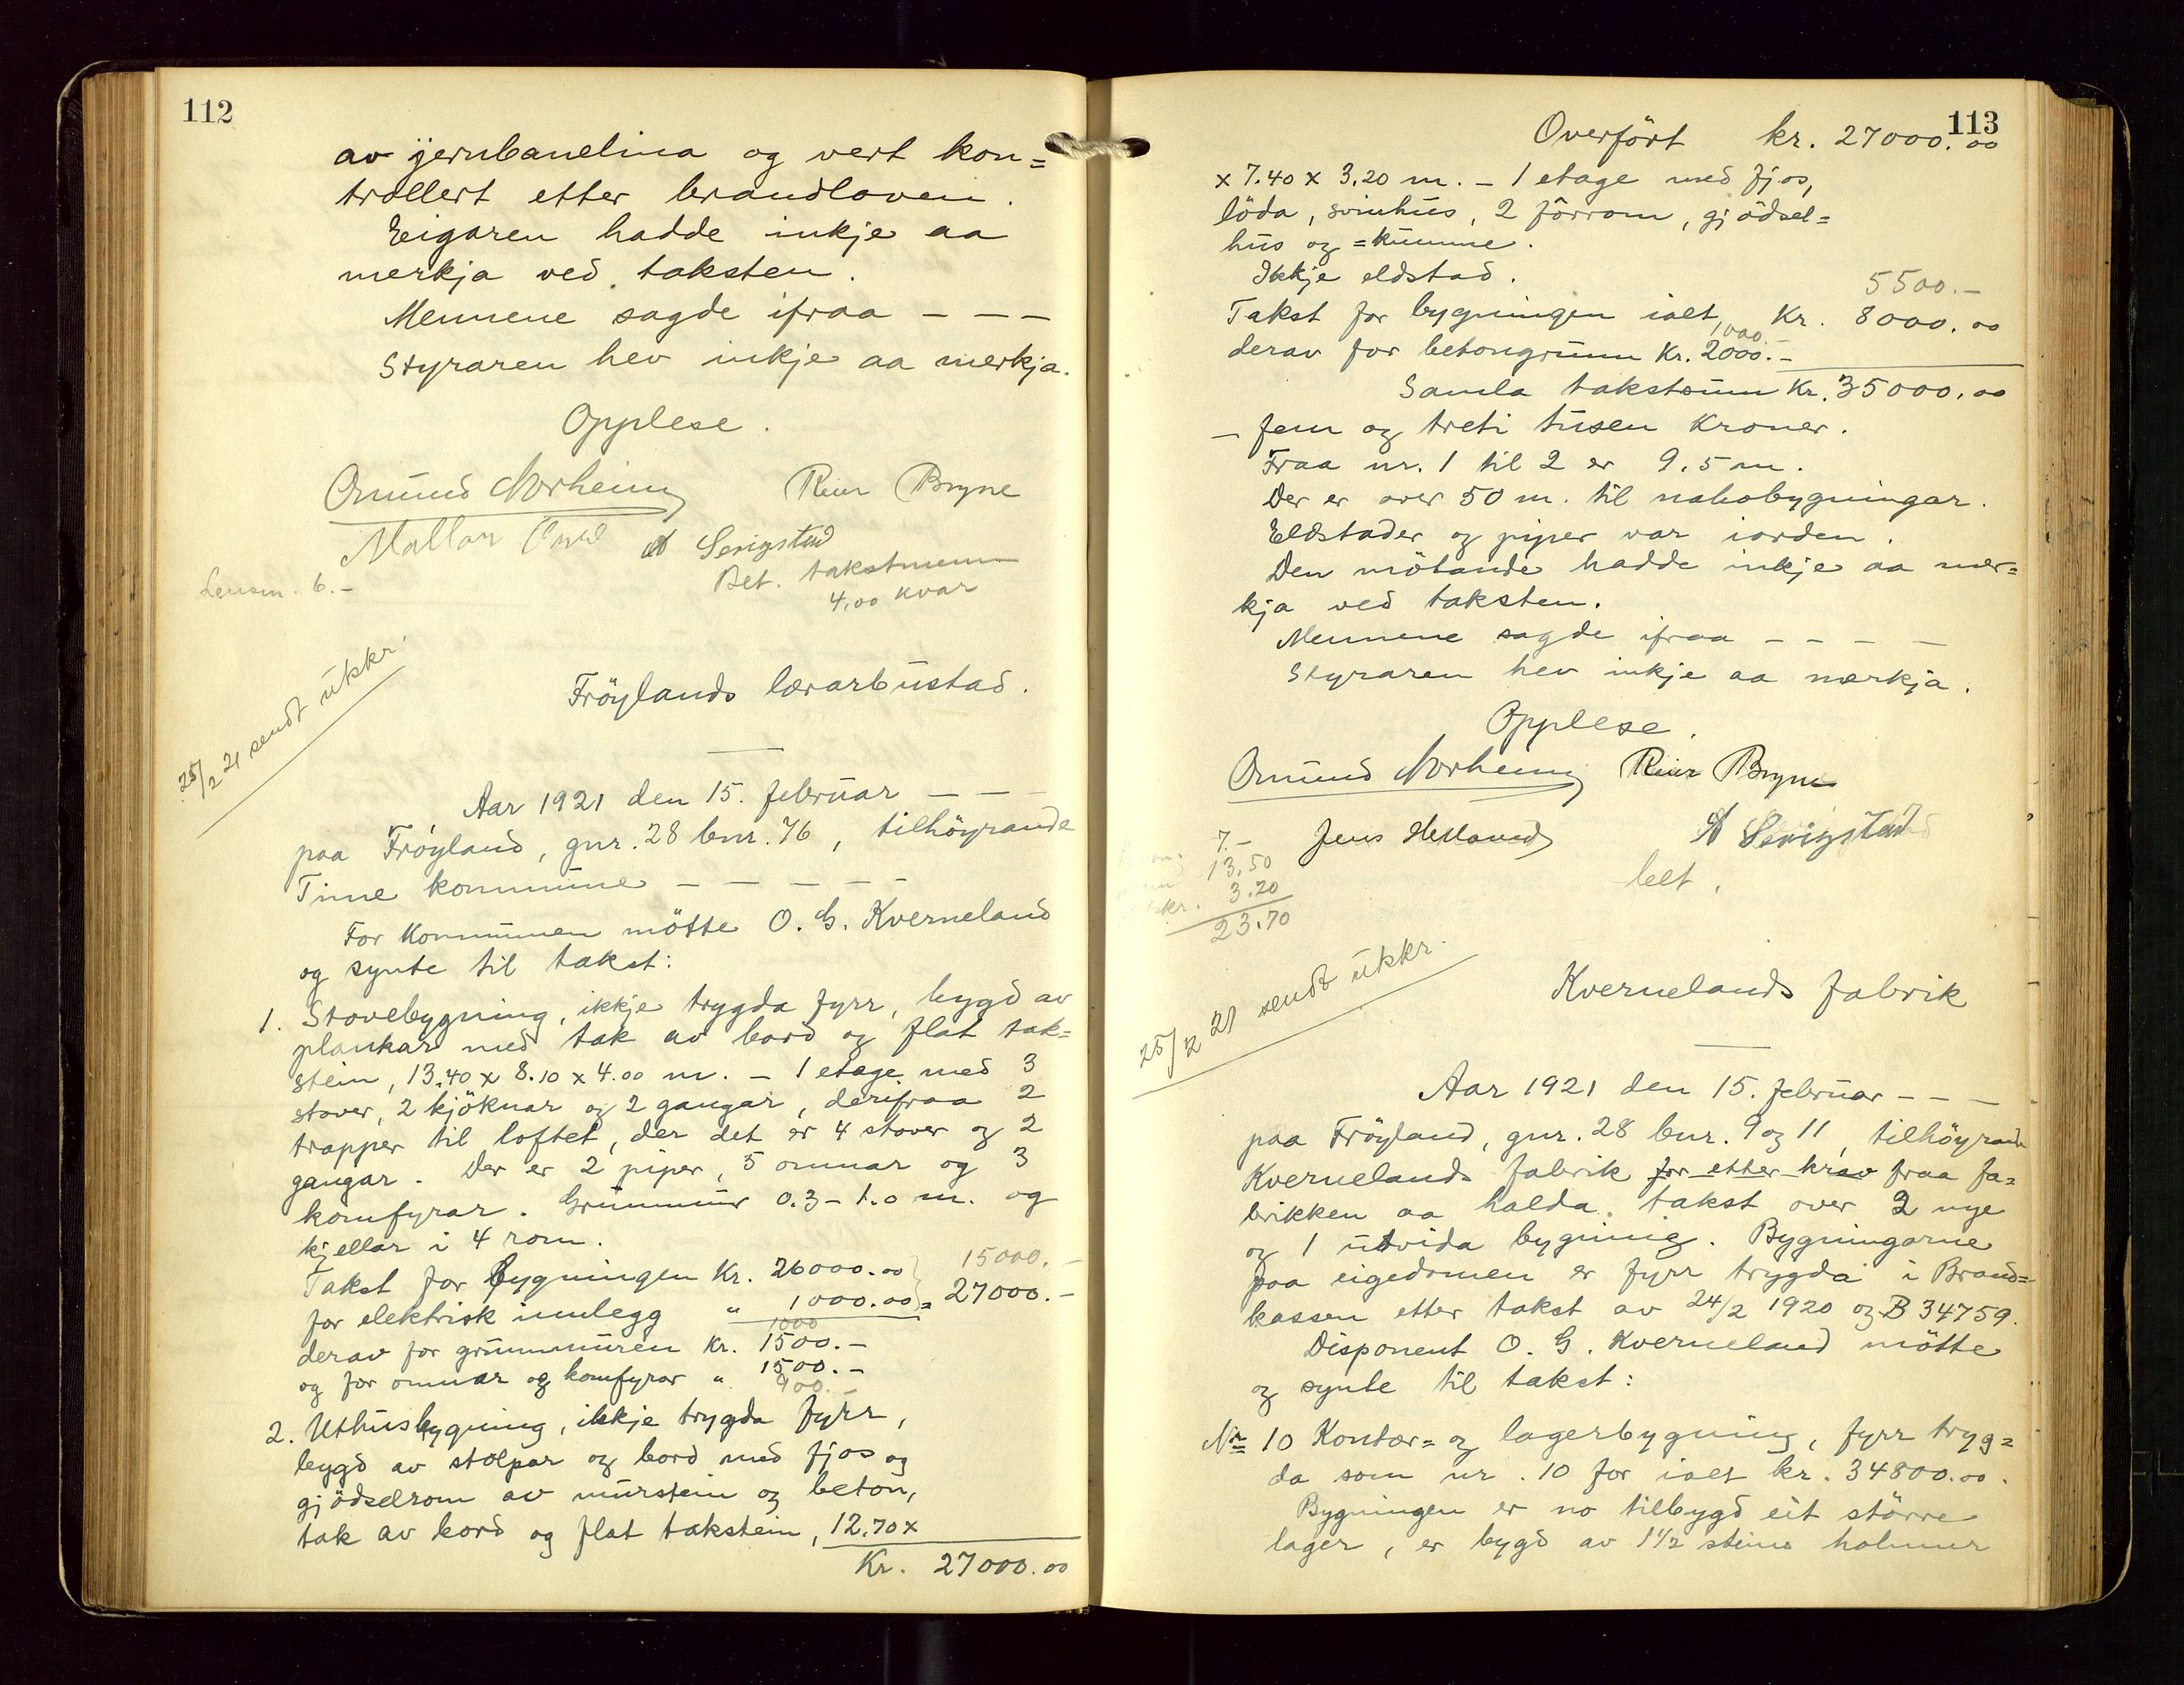 112
av jernbanelina og vert kon=
trollert etter brandloven.
Eigaren hadde inkje aa
merkja ved taksten.
Mennene sagde ifraa - - -
Styraren hev inkje aa merkja.
Opplese.
Omund Norheim Reier Bryne
A Serigstad
Bet. takstmenn
4,00 kvar
Lensm. 6.-
25/2 21 sendt utkkr.
Fröylands lærarbustad.
Aar 1921 den 15. februar - - -
paa Fröyland, gnr. 28 bnr. 76, tilhöyrande
Time kommune - - - - -
For kommunen mötte O. G. Kverneland
og synte til takst:
1. Stovebygning, ikkje trygda fyrr, bygd av
plankar med tak av bord og flat tak=
stein, 13,40 x 8.10 x 4.00 m. - 1 etage med 3
stover, 2 kjöknar og 2 gangar, derifraa 2
trapper til loftet, der det er 4 stover og 2
gangar. Der er 2 piper, 5 omnar og 3
komfyrar. Grunnmur 0.3 - 1.0 m. og
kjellar i 4 rom.
15000.-
Takst for bygningen Kr. 26000.00
for elektrisk innlegg " 1000.00 = 27000.-
1000
derav for grunnmuren Kr. 1500.-
og for omnar og komfyrar " 1500.-
900.-
2. Uthusbygning, ikkje trygda fyrr,
bygd av stolpar og bord med fjos og
gjödselrom av murstein og beton,
tak av bord og flat takstein, 12.70 x
Kr. 27000.00
113
Overfört kr. 27000.00
x 7.40 x 3.20 m. - 1 etage med fjos,
löda, svinhus, 2 fôrrom, gjödsel=
hus og =kumme.
Ikkje eldstad.
5500.-
Takst for bygningen ialt Kr. 8000.00
1000.-
derav for betongrunn Kr. 2000.-
Samla takstsum Kr. 35000.00
- fem og treti tusen Kroner.
Fraa nr. 1 til 2 er 9.5 m.
Der er over 50 m. til nabobygningar.
Eldstader og piper var iorden.
Den mötande hadde inkje aa mer=
kja ved taksten.
Mennene sagde ifraa - - - -
Styraren hev inkje aa merkja.
Opplese.
Omund Norheim Reier Bryne
Jens Helland A Serigstad
bet.
7.-
13,50
3.20
23.70
25/2 21 sendt utkkr.
Kvernelands fabrik
Aar 1921 den 15. februar - - -
paa Fröyland, gnr. 28 bnr. 9 og 11, tilhöyrande
Kvernelands fabrik for etter krav fraa fa=
brikken aa halda takst over 2 nye
og 1 utvida bygning. Bygningarne
paa eigedomen er fyrr trygda i Brand=
kassen etter takst av 24/2 1920 og B 34759.
Disponent O. G. Kverneland mötte
og synte til takst:
Nr 10 Kontor= og lagerbygning, fyrr tryg=
da som nr. 10 for ialt kr. 34800.00.
Bygningen er no tilbygd eit större
lager, er bygd av 1½ steins holmur